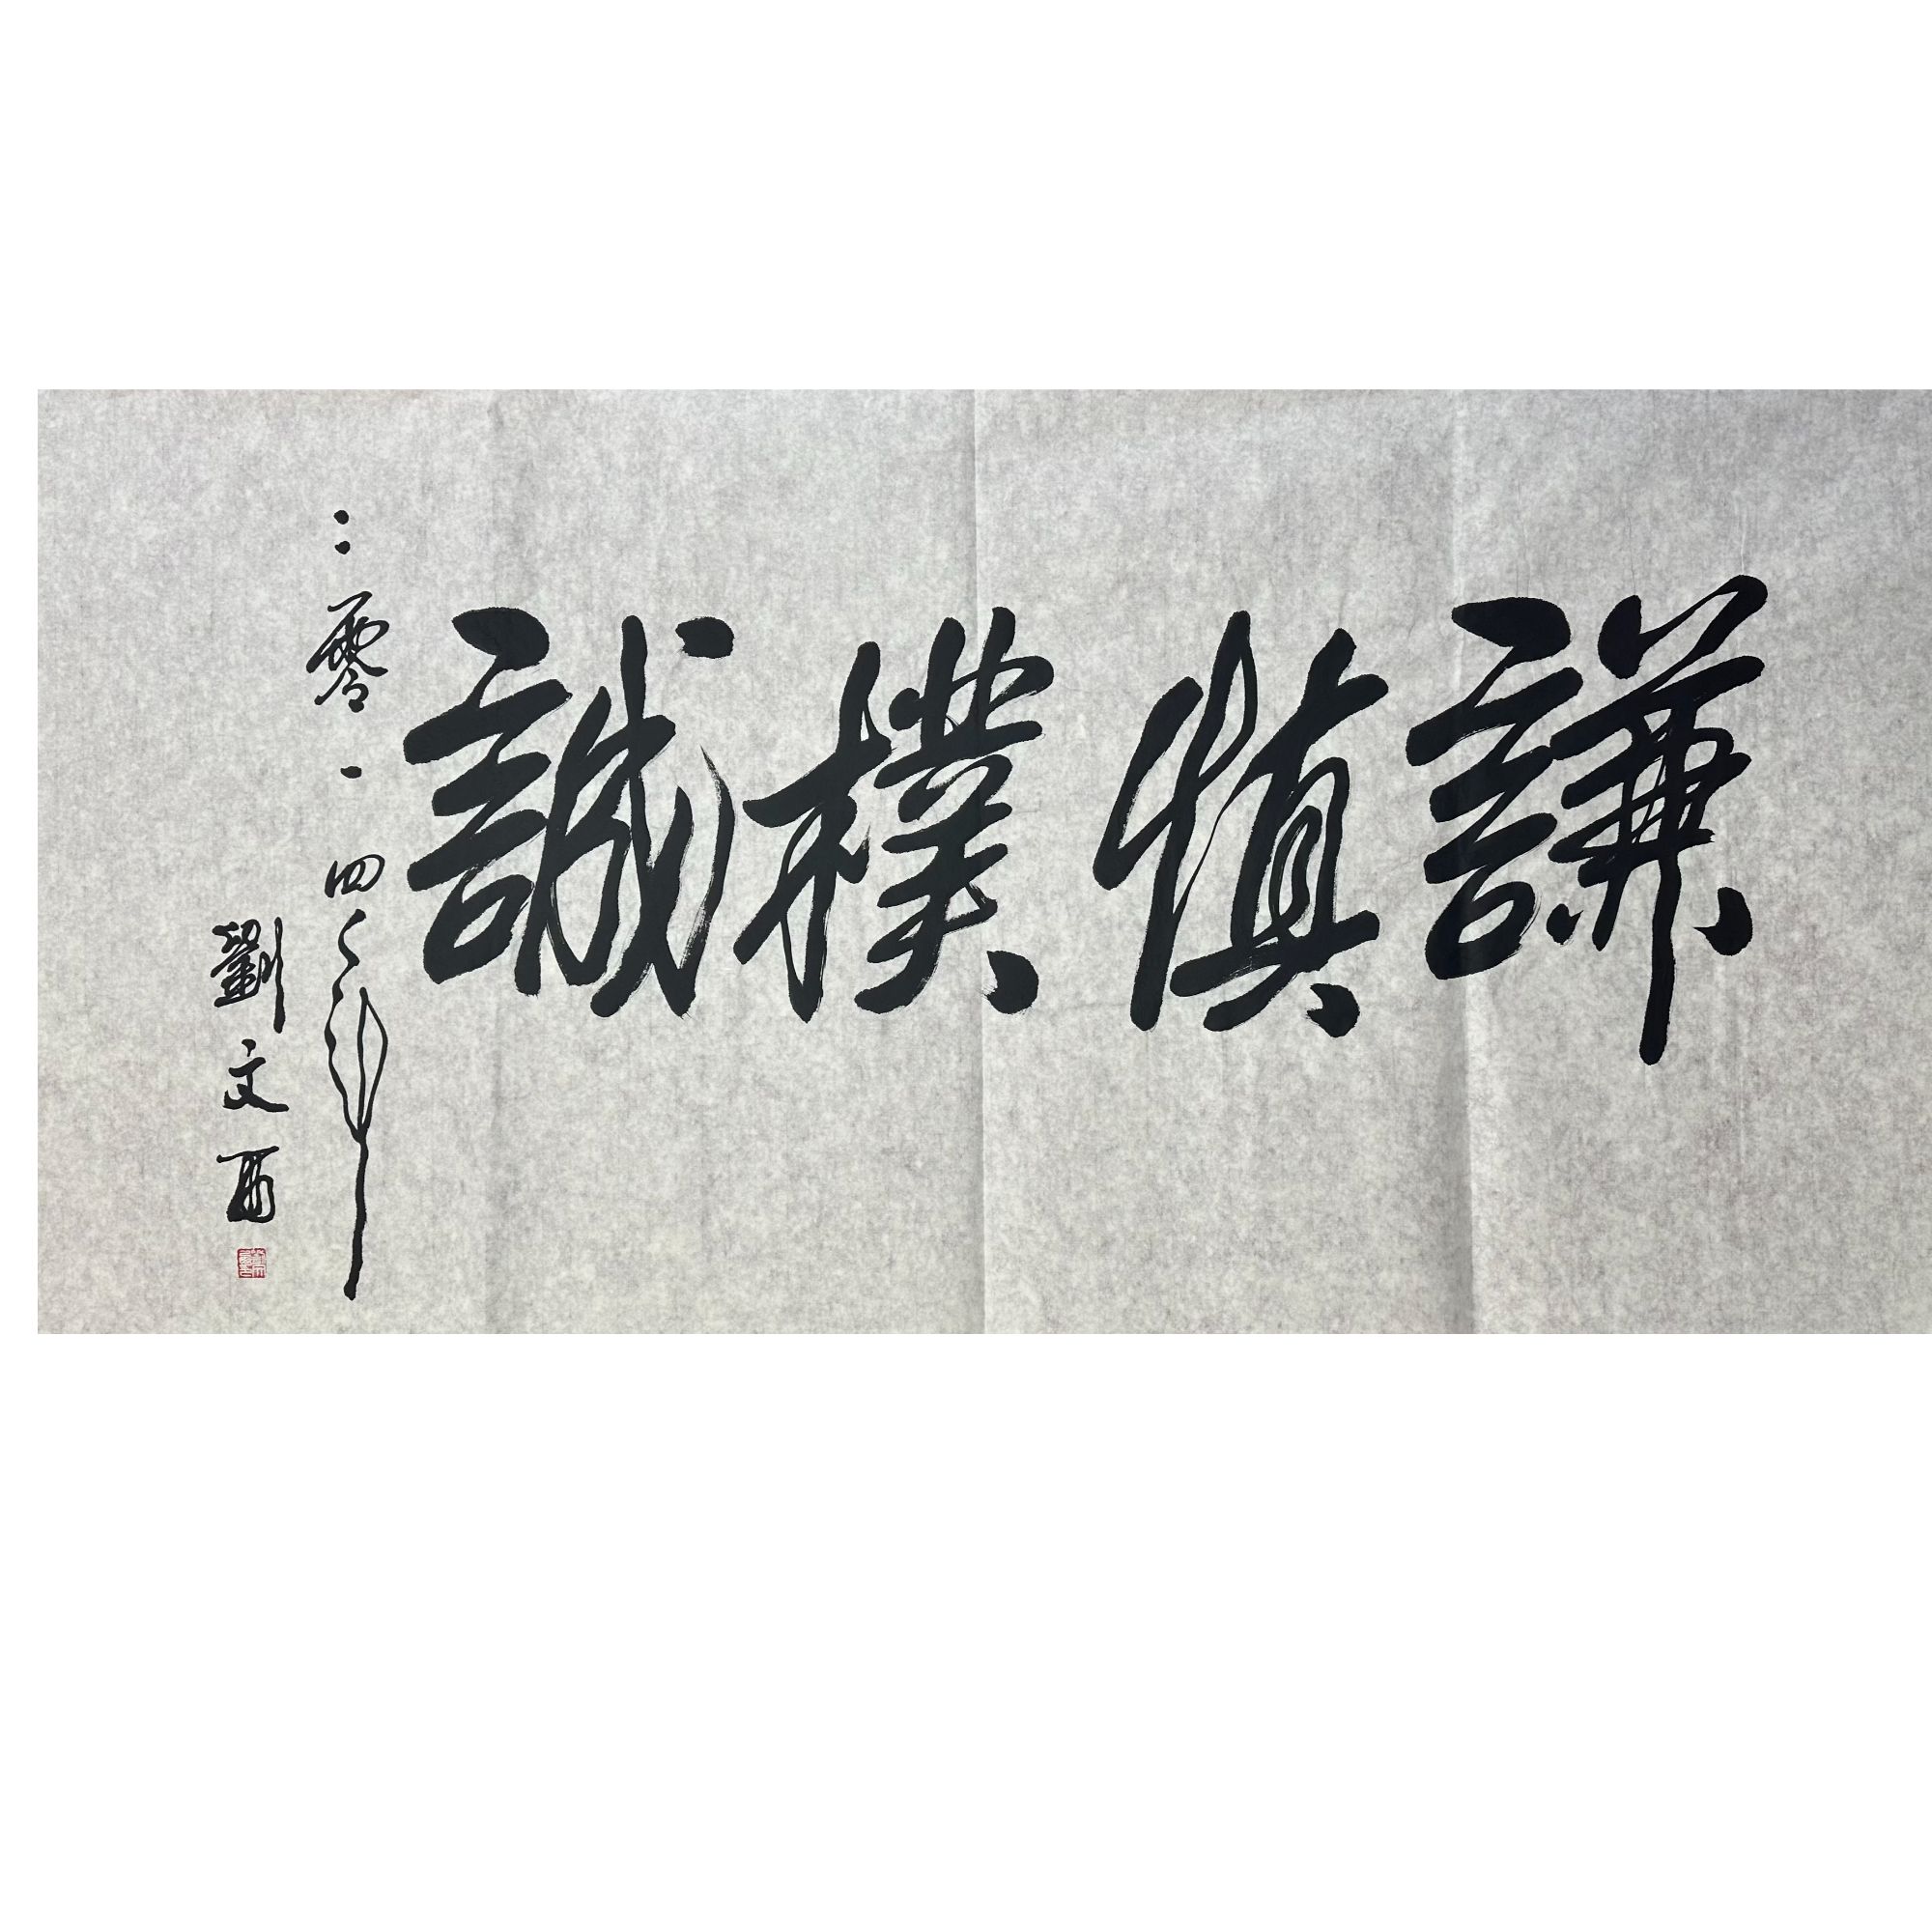 謙慎樸誠
二零一四
劉文西